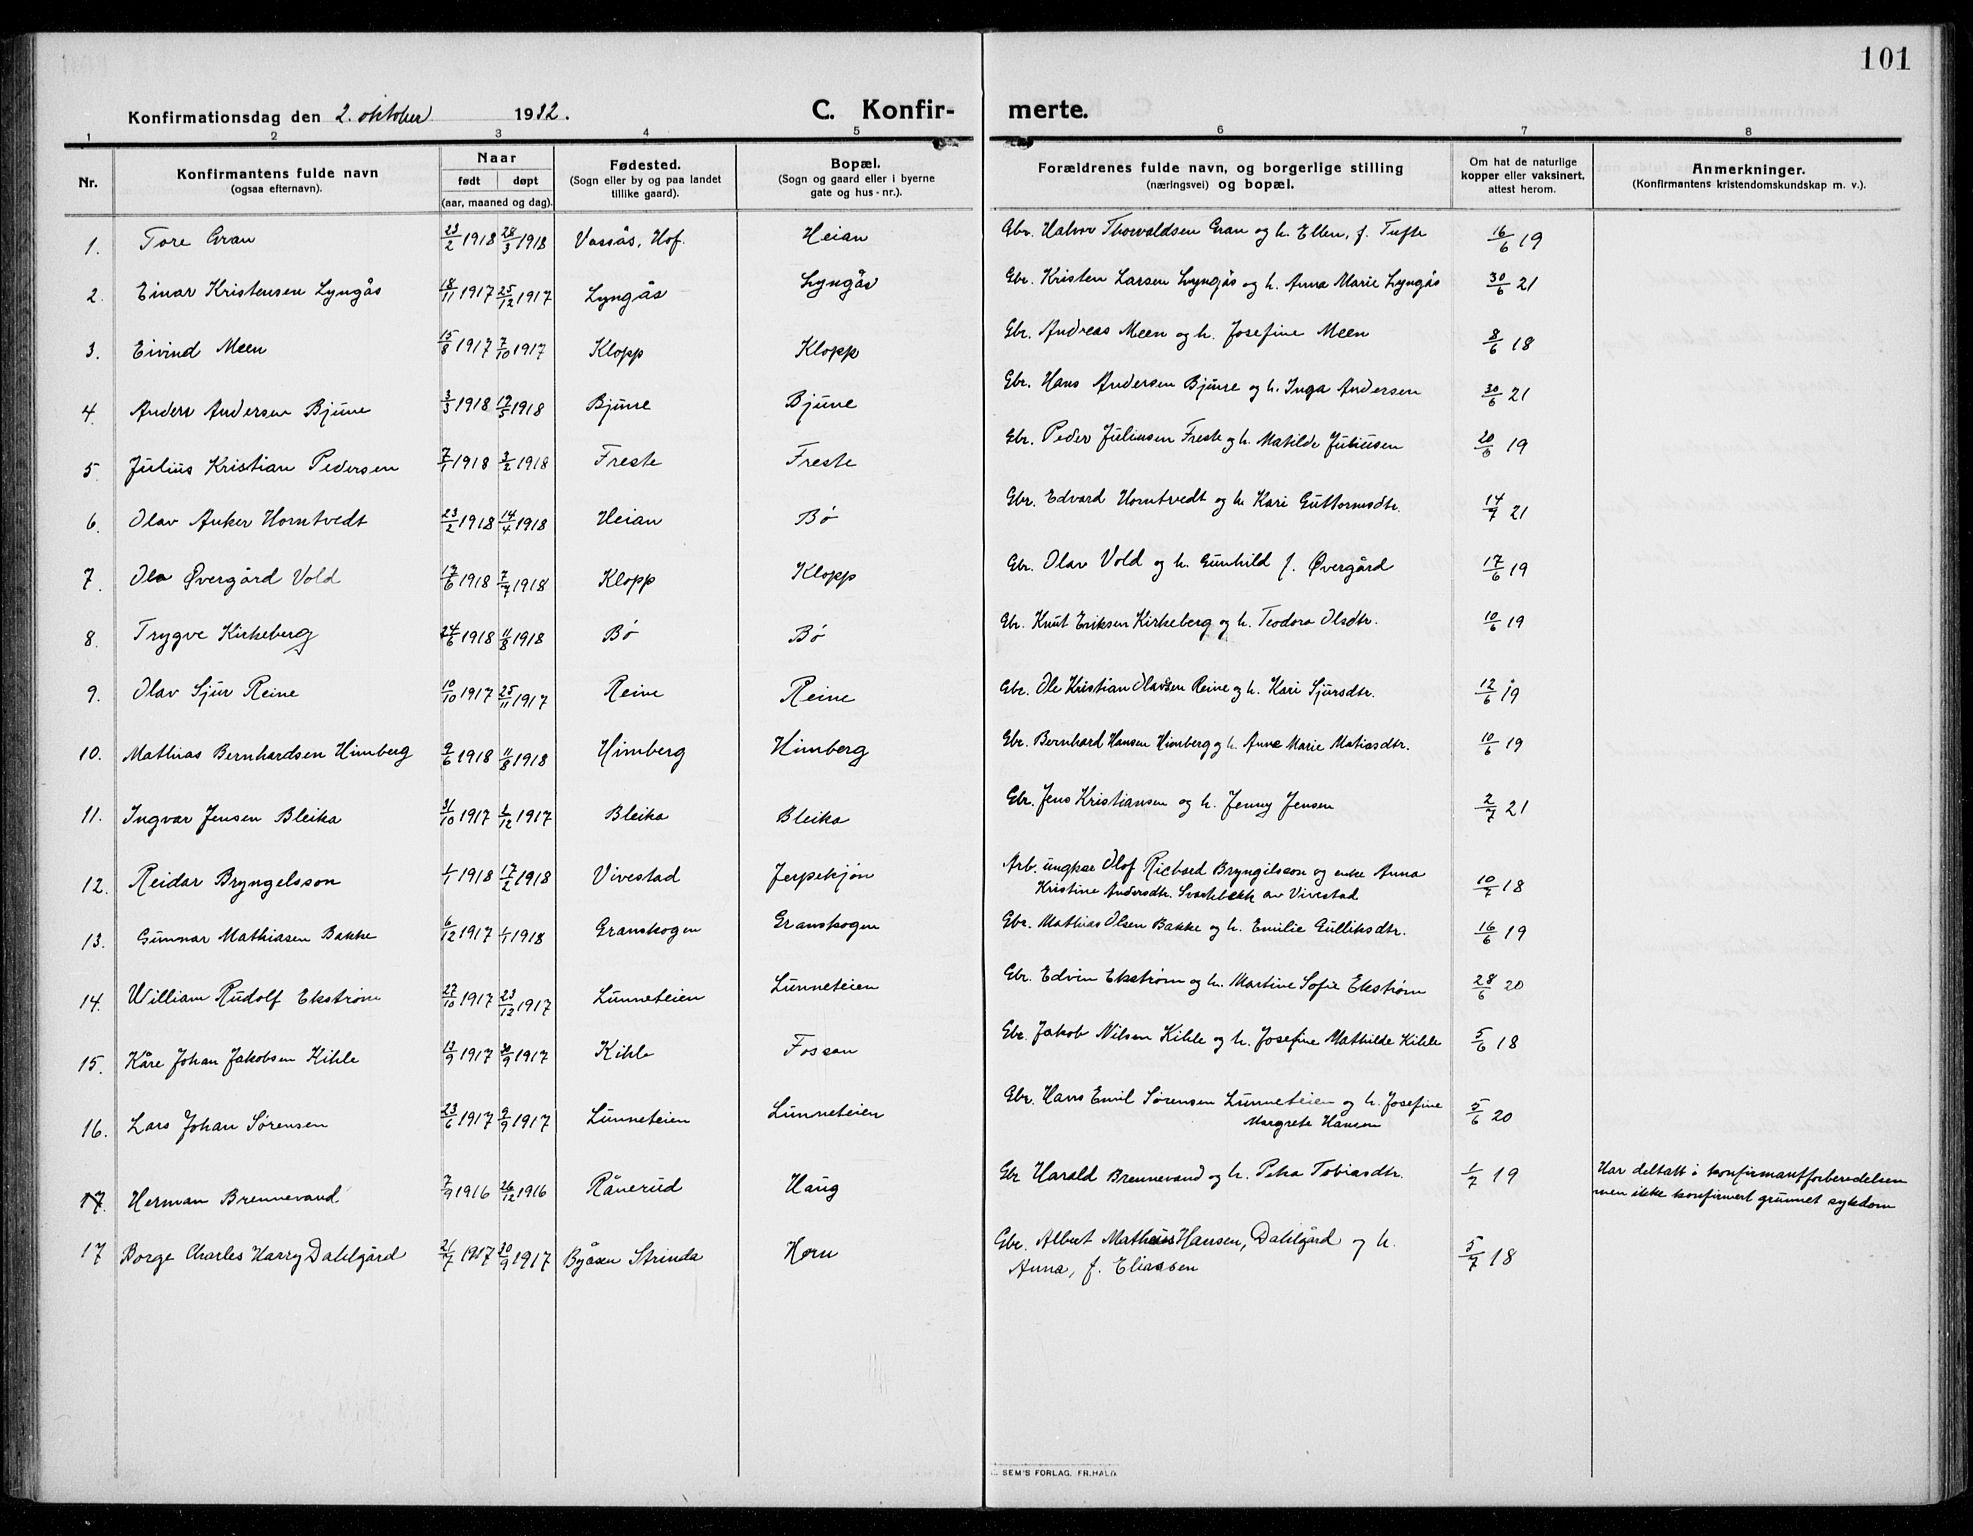 101
Konfirmationsdag den 2. oktober 1932.
C. Konfirmerte.
1 2 3 4 5 6 7 8
Nr.
Konfirmantens fulde navn
(ogsaa efternavn).
Naar
født døpt
(aar, maaned og dag).
Fødested.
(Sogn eller by og paa landet
tillike gaard).
Bopæl.
(Sogn og gaard eller i byerne
gate og hus-nr.).
Forældrenes fulde navn, og borgerlige stilling
(næringsvei) og bopæl.
Om hat de naturlige
kopper eller vaksinert,
attest herom.
Anmerkninger.
(Konfirmantens kristendomskundskap m. v.).
1. Tore Gran 23/2 1918 28/3 1918 Vassås, Hof. Heian Gbr. Halvor Thorvaldsen Gran og h. Ellen, f. Tufte 16/6 19
2. Einar Kristensen Lyngås 18/11 1917 25/12 1917 Lyngås Lyngås Gbr. Kristen Larsen Lyngås og h. Anna Marie Lyngås 30/6 21
3. Eivind Meen 15/8 1917 7/10 1917 Klopp Klopp Gbr. Andreas Meen og h. Josefine Meen 8/6 18
4. Anders Andersen Bjune 3/3 1918 12/5 1918 Bjune Bjune Gbr. Hans Andersen Bjune og h. Inga Andersen 30/6 21
5. Julius Kristian Pedersen 7/1 1918 3/2 1918 Freste Freste Gbr. Peder Juliussen Freste og h. Matilde Juliusen 20/6 19
6. Olav Anker Horntvedt 23/2 1918 14/4 1918 Heian Bø Gbr. Edvard Horntvedt og h. Kari Guttormsdtr. 14/7 21
7. Ola Øvergård Vold 17/6 1918 7/7 1918 Klopp Klopp Gbr. Olav Vold og h. Gunhild f. Øvergård 17/6 19
8. Trygve Kirkeberg 24/6 1918 11/8 1918 Bø Bø Gbr. Knut Eriksen Kirkeberg og h. Teodora Olsdtr. 10/6 19
9. Olav Sjur Reine 10/10 1917 25/11 1917 Reine Reine Gbr. Ole Kristian Olavsen Reine og h. Kari Sjursdtr. 12/6 19
10. Mathias Bernhardsen Himberg 9/6 1918 11/8 1918 Himberg Himberg Gbr. Bernhard Hansen Himberg og h. Anna Marie Matiasdtr. 10/6 19
11. Ingvar Jensen Bleika 31/10 1917 1/12 1917 Bleika Bleika Gbr. Jens Kristiansen og h. Jenny Jensen 2/7 21
12. Reidar Bryngelsson 1/1 1918 17/2 1918 Vivestad Jerpekjøn Arb. ungkar Olof Richard Bryngilsson og enke Anna
Kristine Andersdtr. Svartebekk av Vivestad 10/7 18
13. Gunnar Mathiasen Bakke 6/12 1917 1/1 1918 Granskogen Granskogen Gbr. Mathias Olsen Bakke og h. Emilie Gulliksdtr. 16/6 19
14. William Rudolf Ekstrøm 27/10 1917 23/12 1917 Lunneteien Lunneteien Gbr. Edvin Ekstrøm og h. Martine Sofie Ekstrøm 28/6 20
15. Kåre Johan Jakobsen Kihle 13/9 1917 30/9 1917 Kihle Fossan Gbr. Jakob Nilsen Kihle og h. Josefine Mathilde Kihle 5/6 18
16. Lars Johan Sørensen 23/6 1917 9/9 1917 Lunneteien Lunneteien Gbr. Hans Emil Sørensen Lunneteien og h. Josefine
Margrete Hansen 5/6 20
17. Herman Brennevand 7/9 1916 26/12 1916 Rånerud Haug Gbr Harald Brennevand og h. Petra Tobiasdtr. 1/7 19 Har deltatt i konfirmantforberedelsen
men ikke konfirmert grunnet sykdom
17 Borge Charles Harry Dahlgård 21/7 1917 20/9 1917 Byåsen Strinda Horn Gbr. Albert Mathias Hansen, Dahlgård og h.
Anna, f. Eliassen 5/7 18
SEM'S FORLAG. FR.HALD